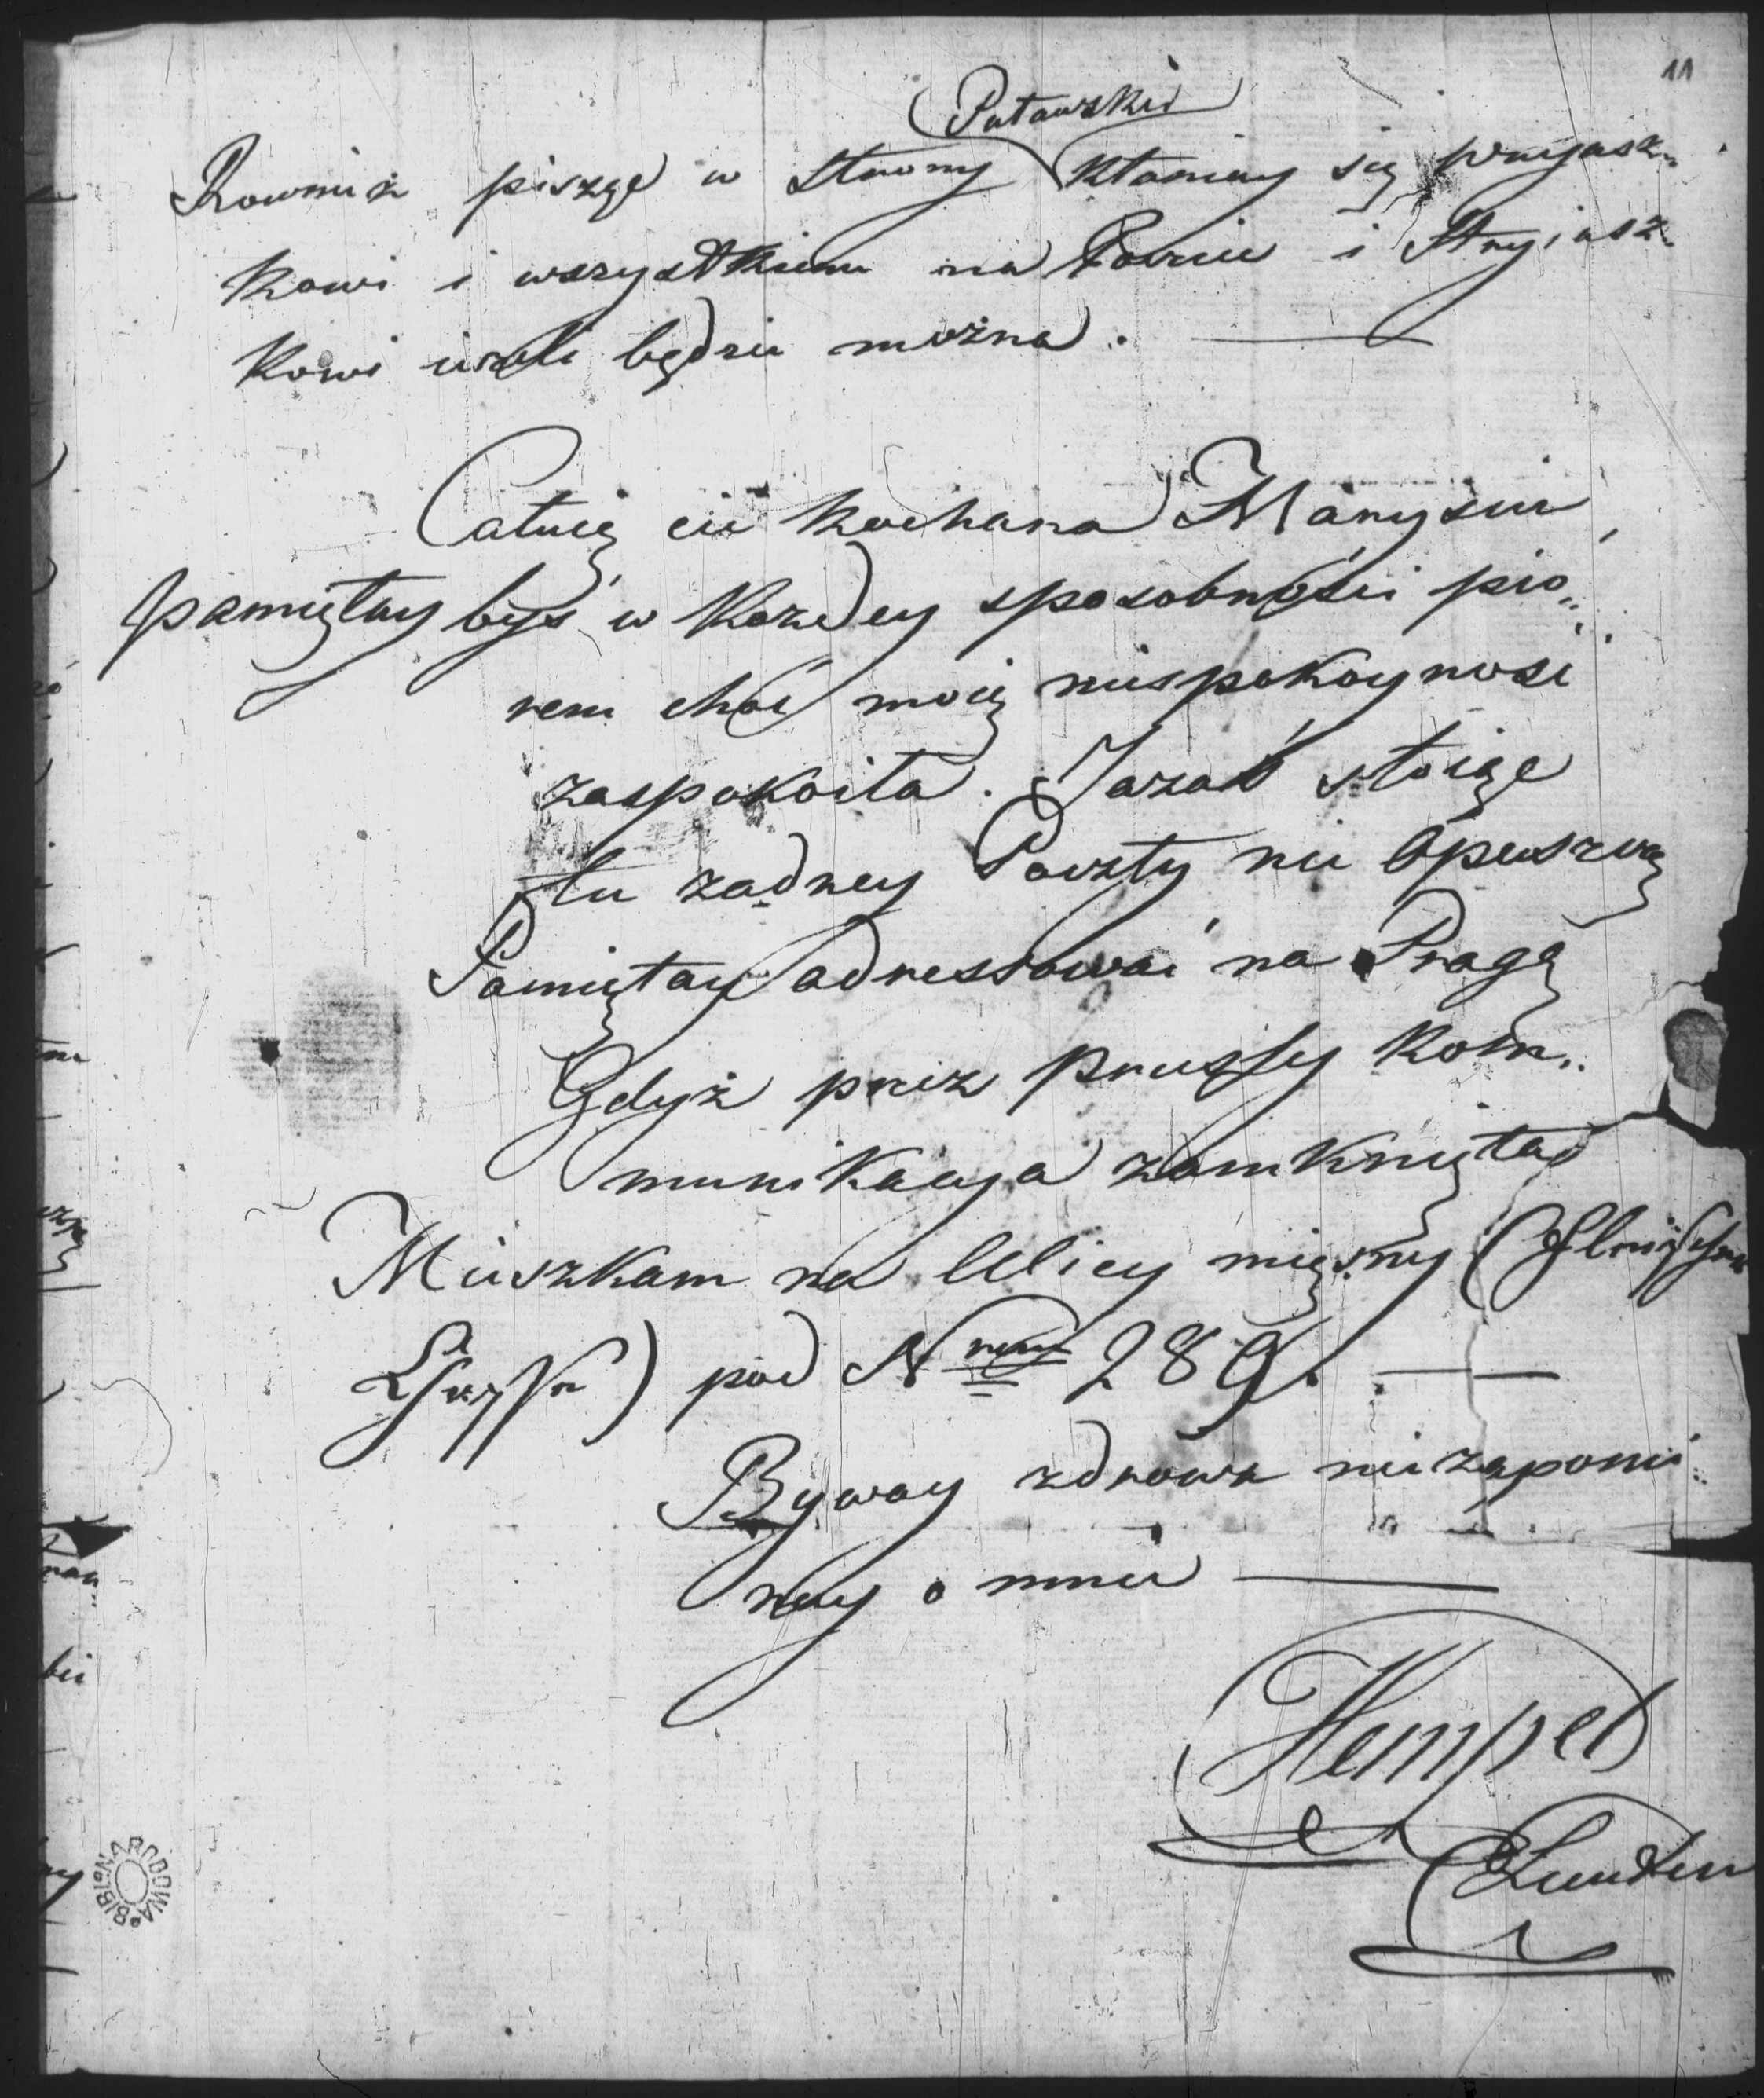 11
Puławskie
Rownież pisząc w strony kłaniay się wuyasz„
kowi i wszystkiem na Powiu i Stryiasz„
kowi iezeli będzie można. —
Całuię cie kochana Marysiu
pamiętay byś w kazdey sposobności pió„
rem choć moię niespokoyność
zaspokoiła. Jazaś stoiąc
tu zadney Poczty nie opuszczę
Pamiętay adressować na Pragę
Gdyż przez Prussy kom„
munikacya zamknięta
Mieszkam na Ulicy mięsney (Fleischer
Gasse) pod Nrem 289. —
Byway zdrowa nie zapomi„
nay o mnie —
Hempel
BIBLIOT. NARODOWA